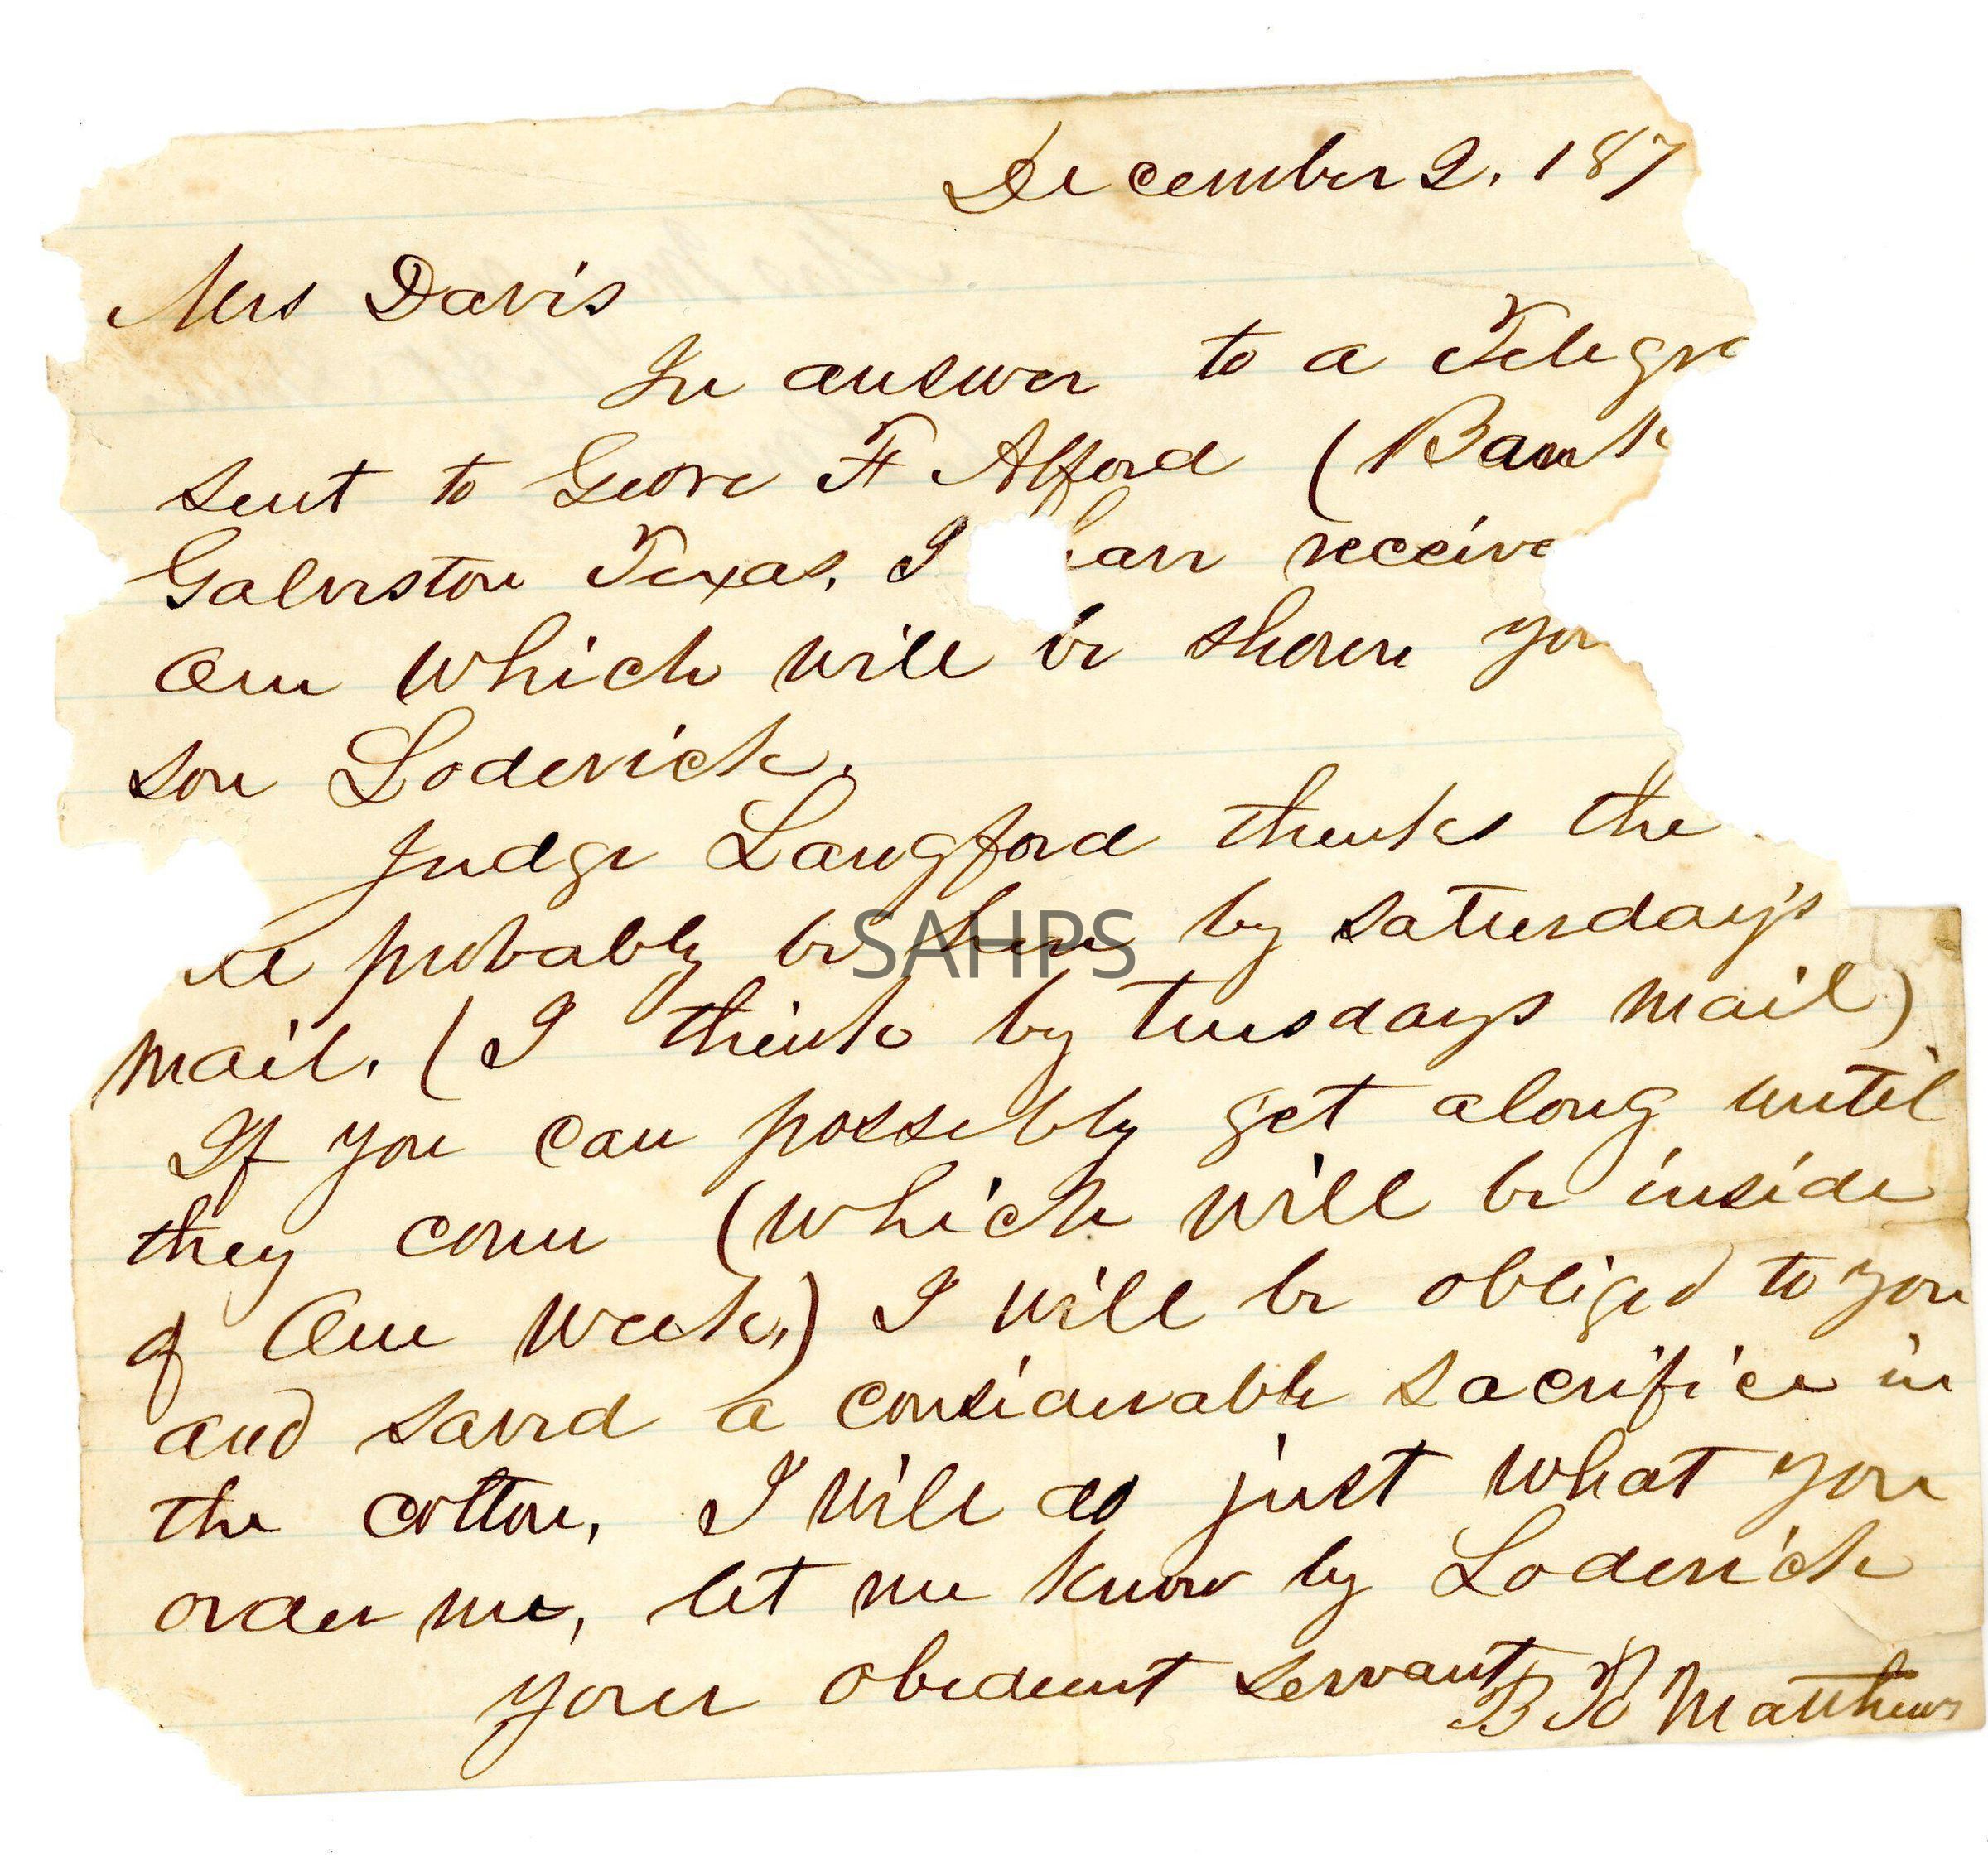 December 2, 187
Mrs Davis
In answer to a Telegra
sent to Geore F Alford (Bank
Galveston Texas. I have receive
one which will be shown you
son Loderick.
Judge Langford thinks the
probably be here by saturday's
mail. (I think by tuesdays mail)
If you can possibly get along until
they come (which will be inside
of One Week,) I will be obliged to you
and saved a considerable sacrifice in
the cotton, I will do just what you
order me, let me know by Loderick
your obedient servant
B R Matthews
SAHPS